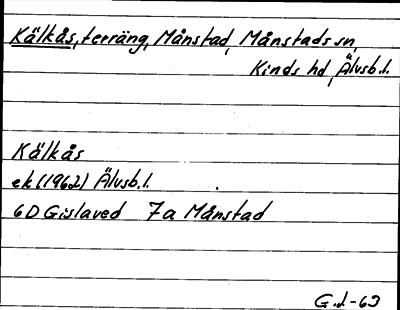 Kälkås, terräng, Månstad, Månstads sn,
Kinds hd, Älvsb.l.
Kälkås
ek (1962) Älvsb.l.
6D Gislaved 7a Månstad
G.d-69